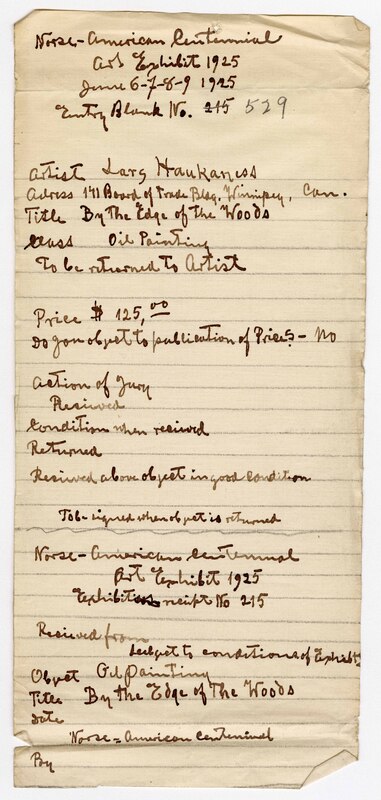 Norse-American Centennial
Art Exhibit 1925
June 6-7-8-9 1925
Entry Blank No. 215 529
Artist Lars Haukaness
Adress 171 Board of Trade Bldg. Winnipeg, Can.
Title By The Edge of The Woods
Class Oil Painting
To be returned to Artist
Price $ 125,00
Do you object to publication of Prices - No
Action of Jury
Recieved
Condition when recieved
Returned
Recieved above object in good condition
To be signed when object is returned
Norse-American Centennial
Art Exhibit 1925
Exhibit recipt No 215
Recieved from
Subject to conditions of Exhibits
Object Oil Painting
Title By The Edge of The Woods
Date
Norse-American Centennial
By